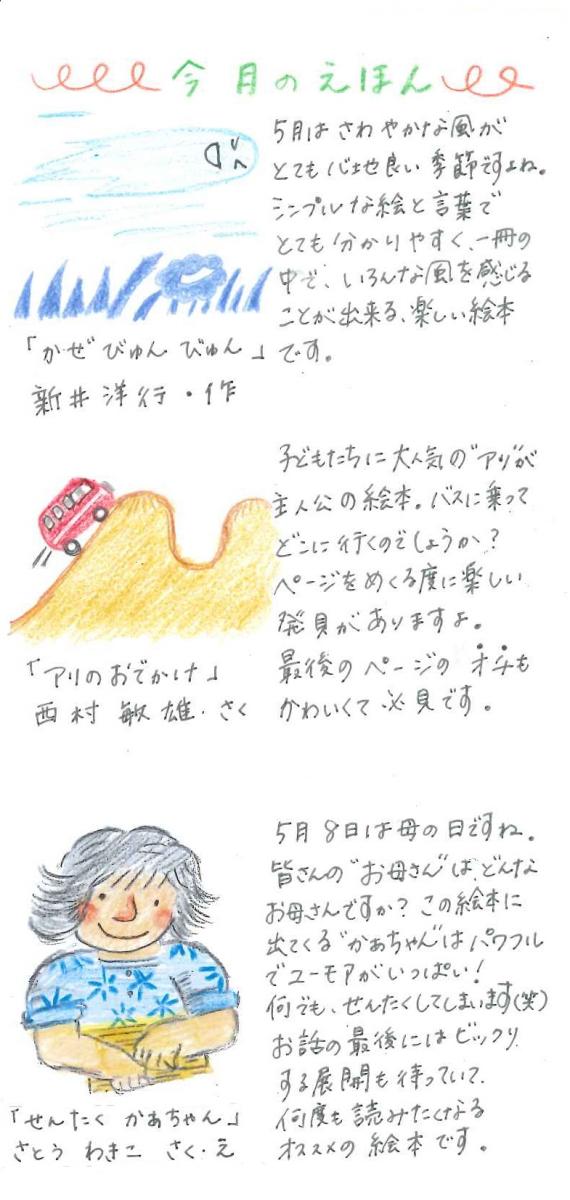 今月のえほん
5月は さわやかな風が
とても心地良い 季節ですよね。
シンプルな絵と言葉で
とても分かりやすく、一冊の
中で、いろんな風を感じる
ことが出来る、楽しい絵本
です。
「かぜ びゅん びゅん」
新井洋行・作
子どもたちに大人気の"アリ"が
主人公の絵本。バスに乗って
どこに行くのでしょうか?
ページをめくる度に楽しい
発見がありますよ。
最後のページの オチも
かわいくて 必見です。
「アリのおでかけ」
西村 敏雄・さく
5月8日は母の日ですね。
皆さんの"お母さん"は、どんな
お母さんですか? この絵本に
出てくる"かあちゃん"はパワフル
でユーモアがいっぱい!
何でも、せんたくしてしまいます(笑)
お話の最後にはビックリ
する展開も待っていて、
何度も読みたくなる
オススメの絵本です。
「せんたく かあちゃん」
さとう わきこ さく・え